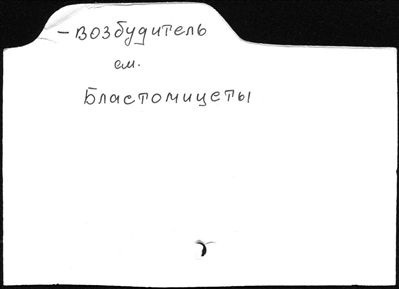 – возбудитель
см.
Бластомицеты